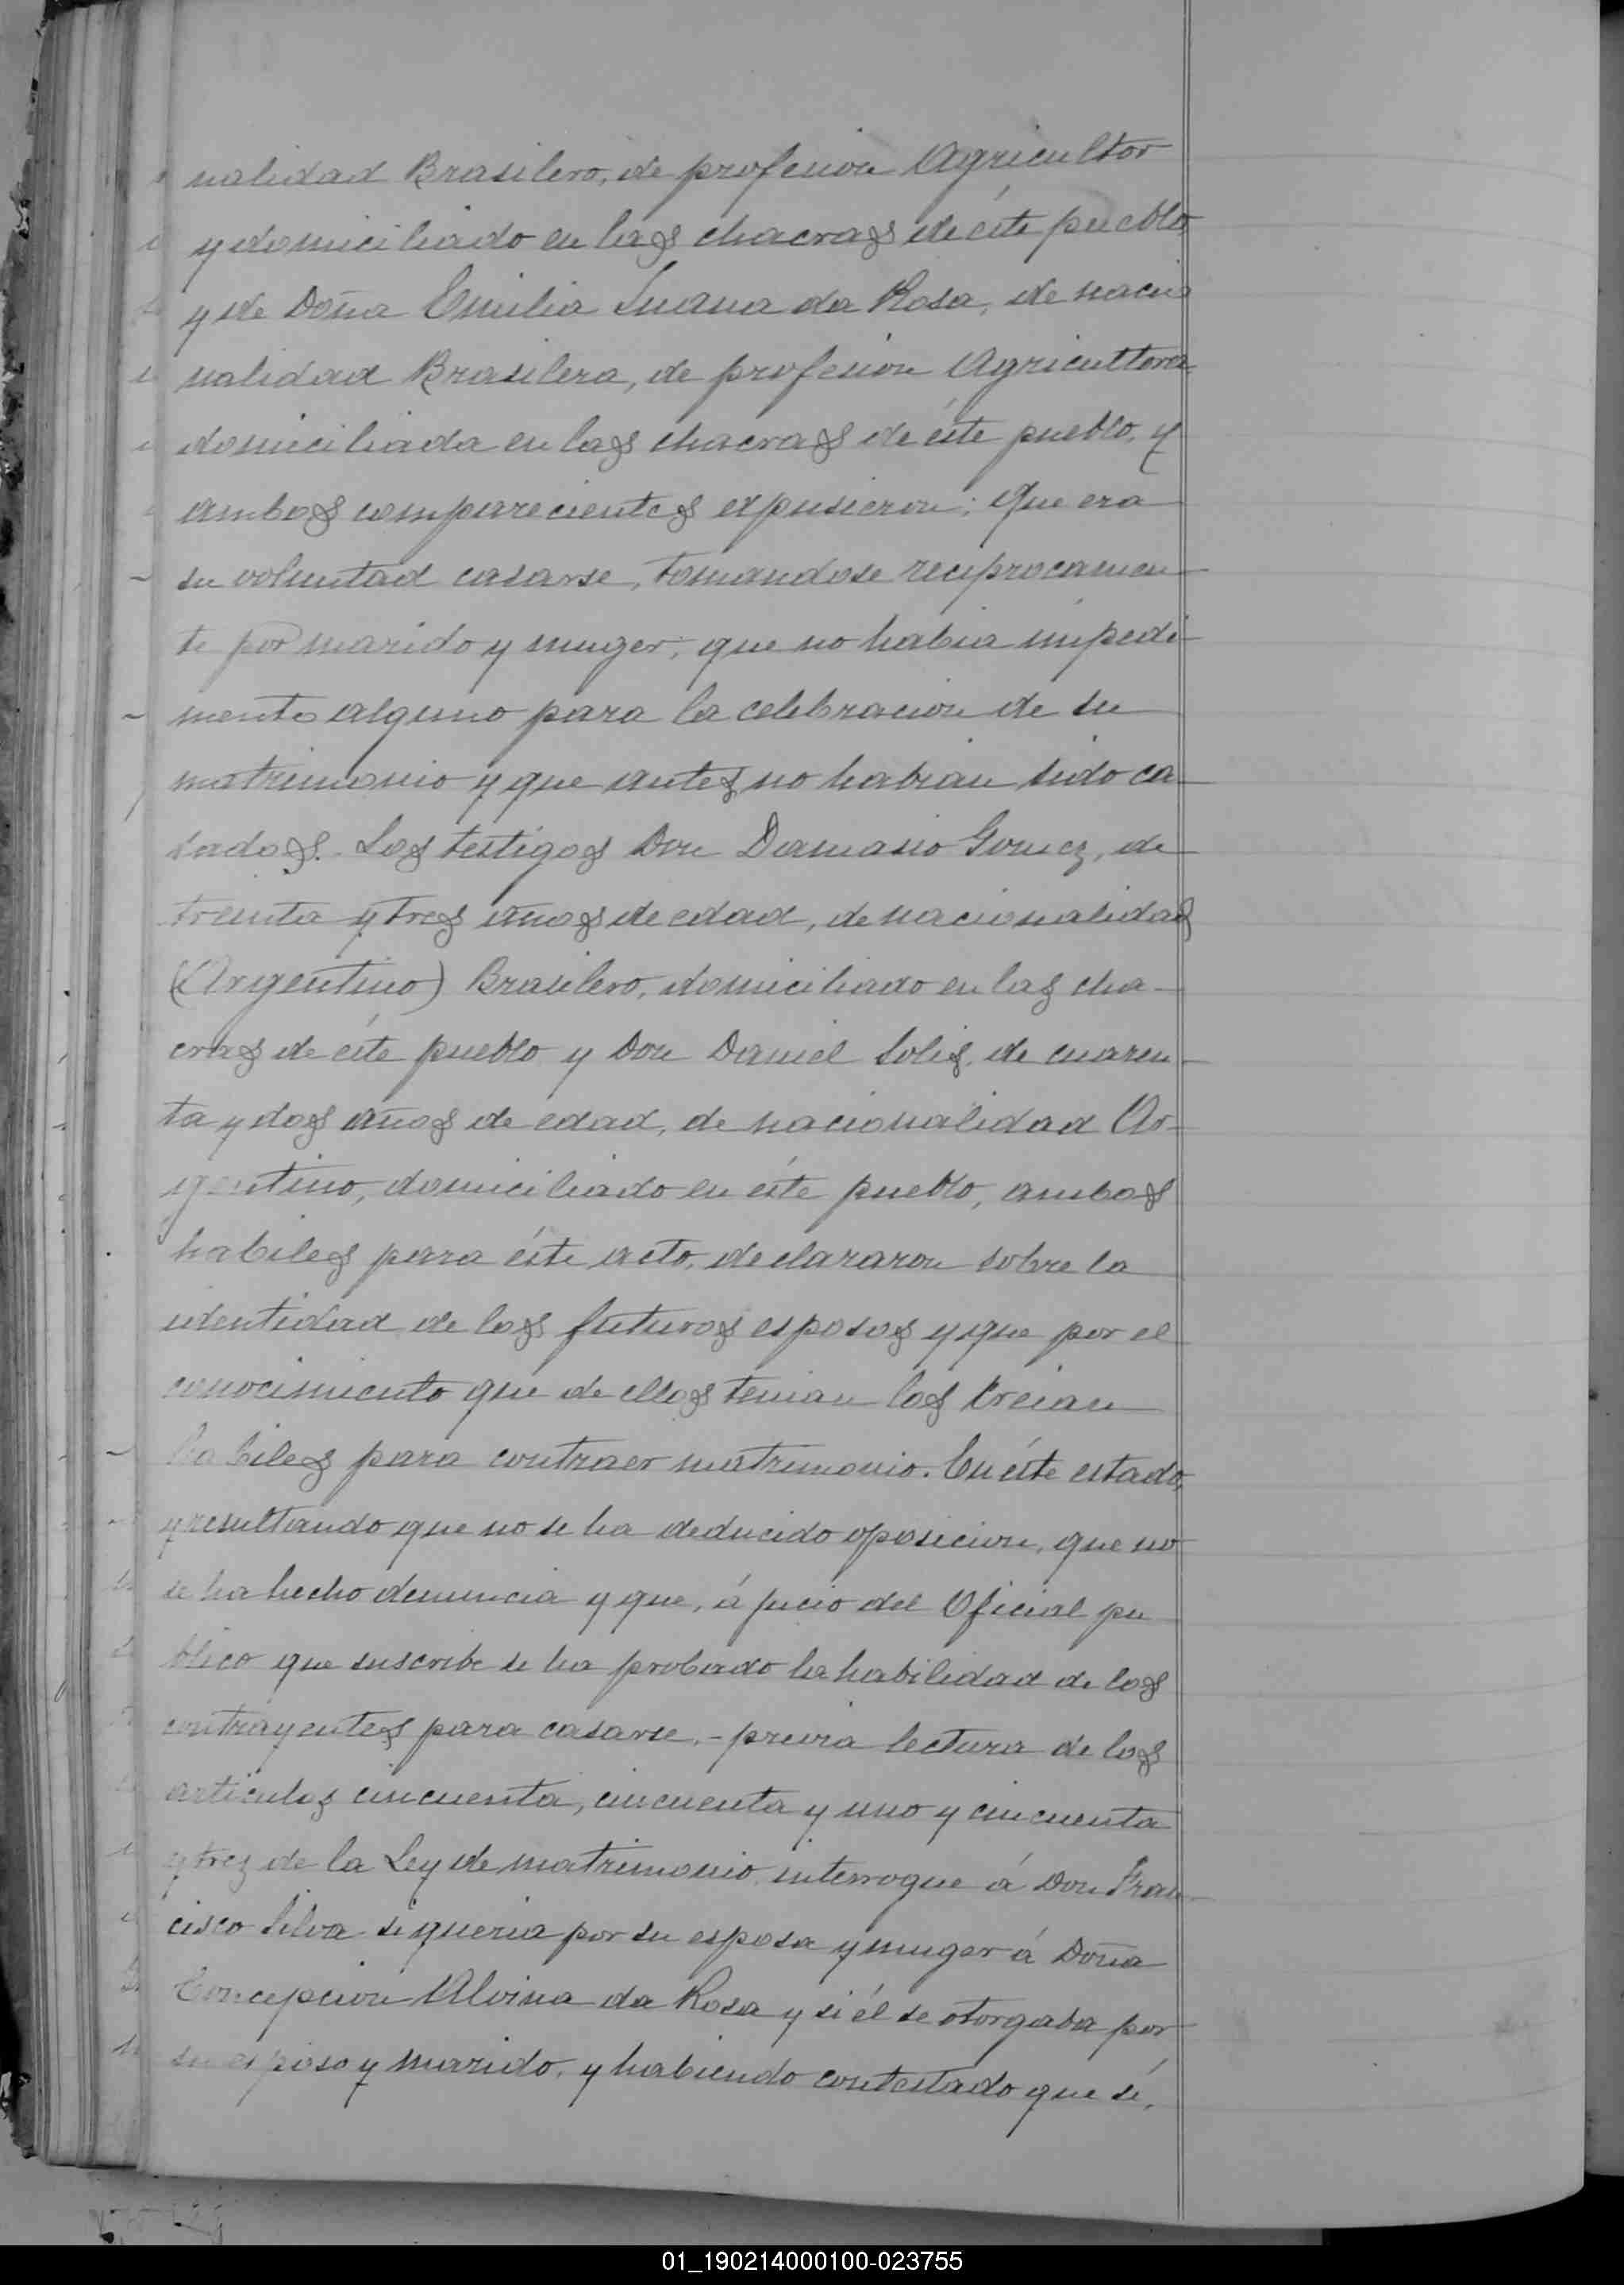 nalidad Brasilero, de profesion Agricultor
y domiciliado en las chacras de éste pueblo,
y de Doña Emilia Juana da Rosa, de nacio
nalidad Brasilera, de profesion Agricultora
domiciliada en las chacras de éste pueblo, y
ambos comparecientes expusieron: que era
su voluntad casarse, tomandose reciprocamen-
te por marido y muger; que no habia impedi-
mento alguno para la celebracion de su
matrimonio y que antes no habian sido ca-
sados. Los testigos Don Damasio Gomez, de
treinta y tres años de edad, de nacionalidad
(Argentino) Brasilero, domiciliado en las cha-
cras de éste pueblo y Don Daniel Solis, de cuaren-
ta y dos años de edad, de nacionalidad Ar-
gentino, domiciliado en éste pueblo, ambos
habiles para éste acto, declararon sobre la
identidad de los futuros esposos y que por el
conocimiento que de ellos tenian los creian
habiles para contraer matrimonio. En éste estado,
y resultando que no se ha deducido oposicion, que no
se ha hecho denuncia y que, á juicio del Oficial pu
blico que suscribe se ha probado la habilidad de los
contrayentes para casarse.- previa lectura de los
articulos cincuenta, cincuenta y uno y cincuenta
y tres de la Ley de matrimonio interrogue á Don Fran-
cisco Silva si queria por su esposa y muger á Doña
Concepcion Alvina da Rosa y si él se otorgaba por
su esposo y marido, y habiendo contestado que sí,
01_190214000100-023755